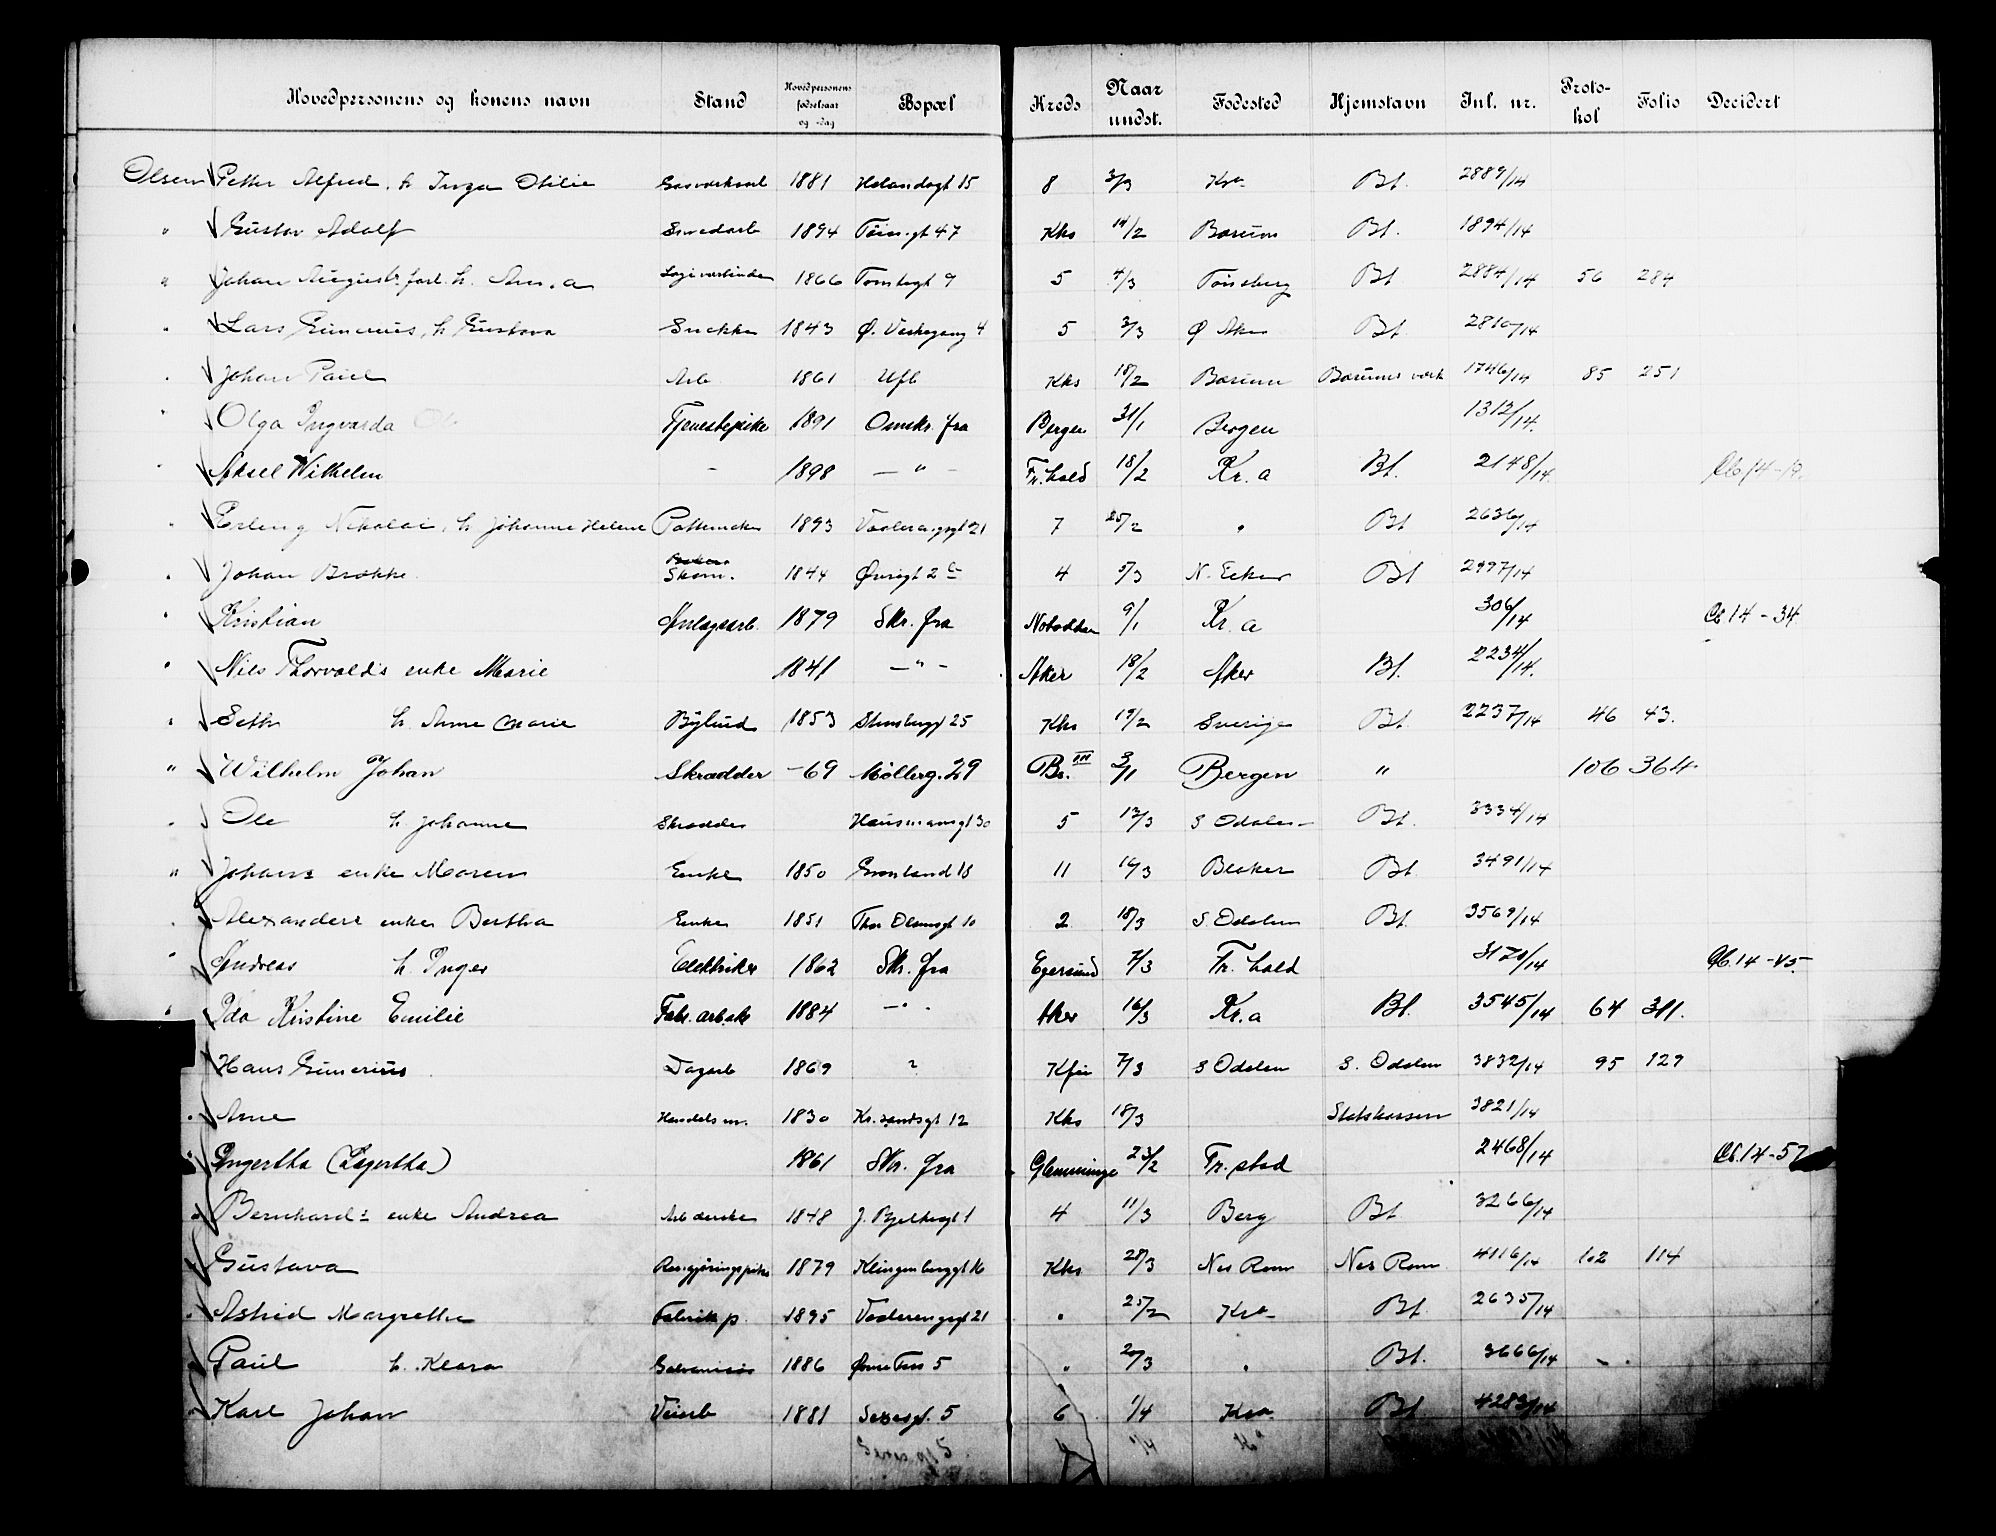 Hovedpersonens og konens navn Stand Hovedpersonens fødselsaar og -dag Bopæl Kreds Naar undst. Fødested Hjemstavn Inl. nr. Protokol Folio Decidert
Olsen Petter Alfred, h. Inga Otilie Gasverksarb 1881 15 8 3/3 Kra Bt. 2889/14
" Gustav Adolf Smedarb 1894 Tøiengt 47 Kks 14/2 Bærum Bt. 1894/14
" Johan August, forl. h. Anna 1866 Tomtegt 9 5 4/3 Tønsberg Bt 2884/14 56 284
" Lars Gunerius, h Gustava Snekker 1843 Ø. Vaskegang 4 5 3/3 Ø Aker Bt. 2810/14
" Johan Paul Arb 1861 Ufb Kks 18/2 Bærum Bærums verk 1746/14 85 251
" Olga Ingvarda Tjenestepike 1891 Omskr. fra Bergen 31/1 Bergen 1312/14.
" Aksel Wilhelm - 1898 - " - Fr.hald 18/2 Kr.a Bt. 2148/14 Cb.14-19.
" Erling Nikolai, h. Johanne Helene Pottemaker 1893 Vaalerengagt 21 7 25/2 " Bt 2636/14
" Johan Brække Skom. 1844 Øvregt 2 c 4 5/3 N. Eker Bt 2997/14
" Kristian Anlægsarb. 1879 Skr. fra Notodden 9/1 Kr.a 306/14 Cb.14-34
" Nils Thorvalds enke Marie 1841 - " - Aker 18/2 Aker Bt. 2234/14.
" Seth h. Anne Marie Bylud 1853 Stensbergt 25 Kks 19/2 Sverige Bt. 2237/14 46 43.
" Wilhelm Johan Skrædder -69 Møllerg. 29 Br. III 3/1 Bergen " 106 364.
" Ole h. Johanne Skrædder Hausmansgt 30 5 13/3 S Odalen Bt. 3334/14
" Johans enke Maren Enke 1850 Grønland 18 11 16/3 Blaker Bt. 3491/14
" Alexanders enke Bertha Enke 1851 Thor Olsensgt 10 2 18/3 S Odalen Bt. 3569/14
" Andreas h. Inger Elektriker 1862 Skr. fra Egersund 7/3 Fr.hald 3170/14 Cb.14-45.
" Ida Kristine Emilie Fabr.arb.ske 1884 - " - Aker 16/3 Kr.a Bt. 3545/14 64 311.
Hans Gunerius Dagarb 1869 ? Kfm 7/3 S Odalen S. Odalen 3832/14 95 129
" Arne Handelsm. 1830 Kr.sandsgt 12 Kks 18/3 Statskassen 3821/14
" Ingertha (Lagertha) 1861 Skr. fra Glemminge 23/2 Fr.stad 2468/14 Cb.14-57
" Bernhards enke Andrea Arbderske 1848 J. Bjelkesgt 1 4 11/3 Berg Bt. 3266/14
" Gustava Rengjøringspike 1879 Klingenberggt 16 Kks 28/3 Nes Rom Nes Rom 4116/14 102 114
" Astrid Margrethe Fabrikp. 1895 Vaalerengagt 21 " 25/2 Kra Bt. 2635/14
" Paul h. Klara Galvanisør 1886 Øvre Foss 5 " 20/3 " Bt. 3666/14
" Karl Johan Veiarb 1881 5 6 1/4 Kra Bt 4283/14